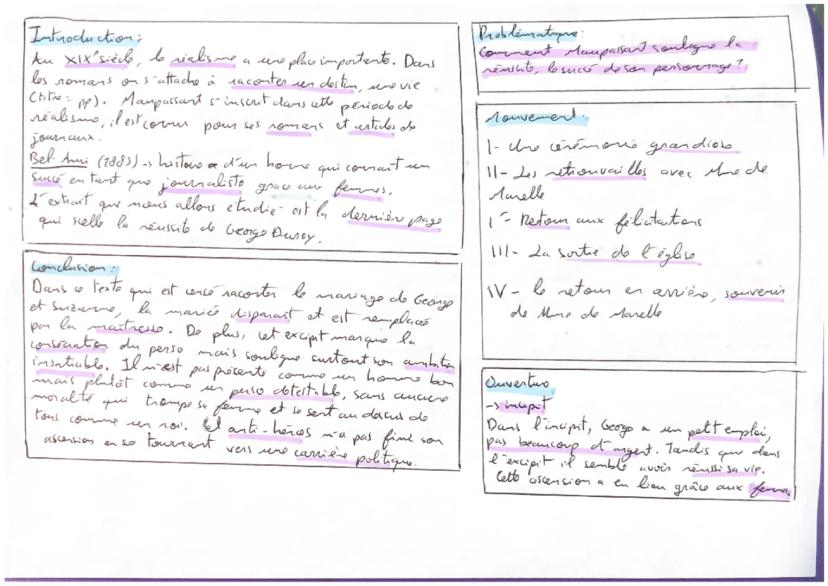 Introduction:
Au XIXe siècle, le réalisme a une place importante. Dans
les romans on s'attache à raconter un destin, une vie
(titre = pp). Maupassant s'inscrit dans cette période de
réalisme, il est connu pour ses romans et articles de
journaux.
Bel-Ami (1885) → histoire d'un homme qui connait un
succé en tant que journaliste grace aux femmes.
L'extrait que nous allons étudier est la dernière page
qui scelle la réussite de George Duroy.
Conclusion:
Dans ce texte qui est censé raconter le mariage de George
et Suzanne, la mariée disparait et est remplacée
par la maîtresse. De plus, cet excipit marque la
consécration du perso mais souligne surtout son ambition
insatiable. Il n'est pas présenté comme un homme bon
mais plutôt comme un perso détestable, sans aucune
moralité qui trompe sa femme et se sent au dessus de
tous comme un roi. Cet anti-héros n'a pas fini son
ascension en se tournant vers une carrière politique.
Problématique:
Comment Maupassant souligne la
réussite, le succé de son personnage?
Mouvement:
I- Une cérémonie grandiose
II- Les retrouvailles avec Mme de
Marelle
I'- Retour aux félicitations
III- La sortie de l'église
IV- le retour en arrière, souvenir
de Mme de Marelle
Ouverture
→ incipit
Dans l'incipit, George a un petit emploi,
pas beaucoup d'argent. Tandis que dans
l'excipit il semble avoir réussi sa vie.
Cette ascension a eu lieu grâce aux femmes.